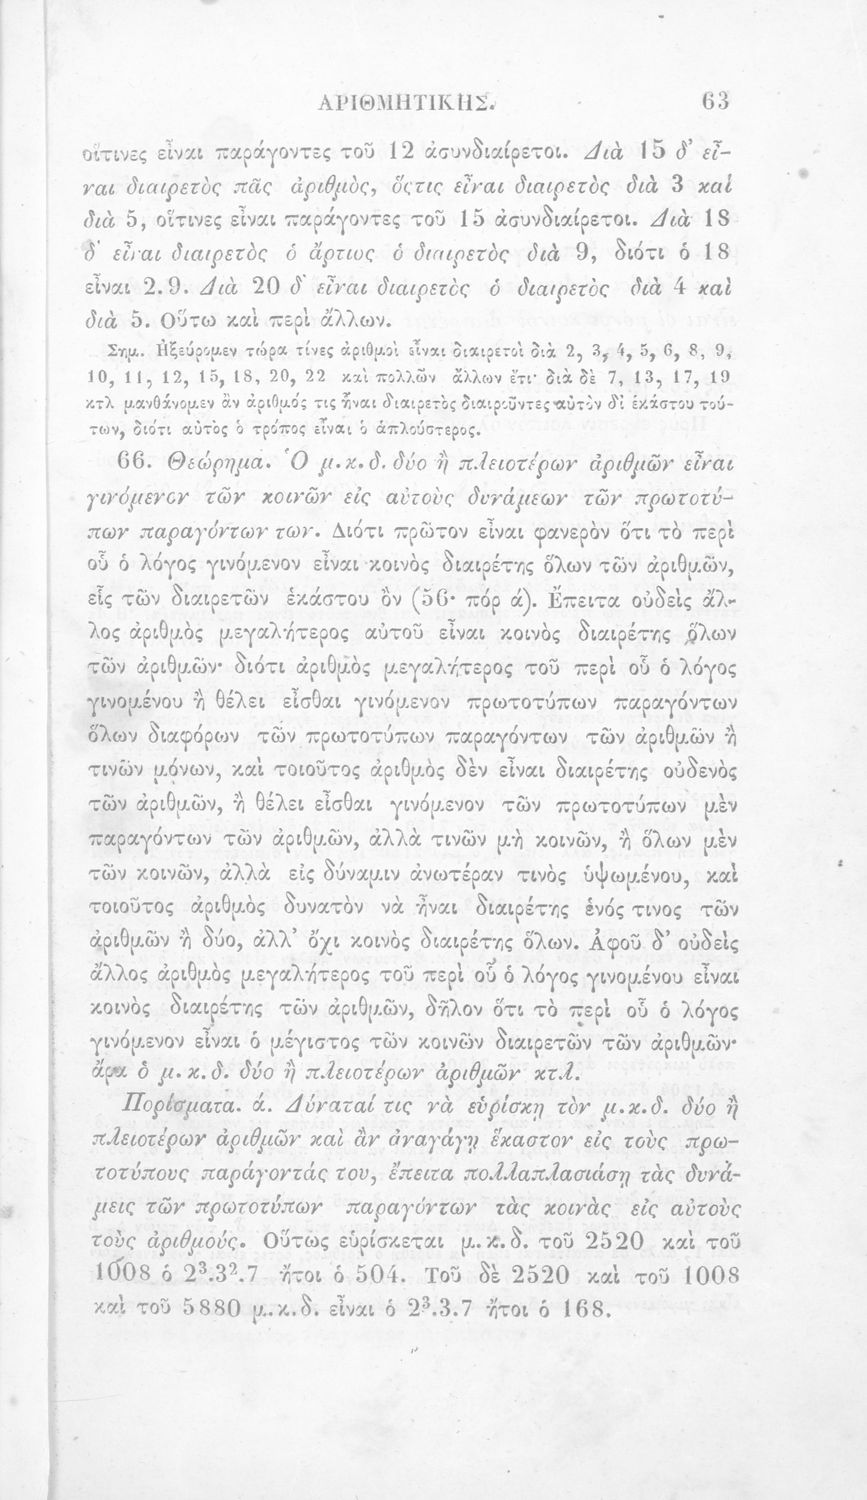 ΑΡΙΘΜΗΤΙΚΗΣ. 63
οἵτινες εἶναι παράγοντες τοῦ 12 ἀσυνδιαίρετοι. Διὰ 15 δ' εἶ-
ναι διαιρετὸς πᾶς ἀριθμὸς, ὅςτις εἶναι διαιρετὸς διὰ 3 καὶ
διὰ 5, οἵτινες εἶναι παράγοντες τοῦ 15 ἀσυνδιαίρετοι. Διὰ 18
δ' εἶναι διαιρετὸς ὁ ἄρτιος ὁ διαιρετὸς διὰ 9, διότι ὁ 18
εἶναι 2.9. Διὰ 20 δ' εἶναι διαιρετὸς ὁ διαιρετὸς διὰ 4 καὶ
διὰ 5. Οὕτω καὶ περὶ ἄλλων.
Σημ. Ἠξεύρομεν τώρα τίνες ἀριθμοὶ εἶναι διαιρετοὶ διὰ 2, 3, 4, 5, 6, 8, 9,
10, 11, 12, 15, 18, 20, 22 καὶ πολλῶν ἄλλων ἔτι· διὰ δὲ 7, 13, 17, 19
κτλ μανθάνομεν ἂν ἀριθμός τις ἦναι διαιρετὸς διαιροῦντες αὐτὸν δι' ἑκάστου τού-
των, διότι αὐτὸς ὁ τρόπος εἶναι ὁ ἁπλούστερος.
66. Θεώρημα. Ὁ μ.κ.δ. δύο ἢ πλειοτέρων ἀριθμῶν εἶναι
γινόμενον τῶν κοινῶν εἰς αὐτοὺς δυνάμεων τῶν πρωτοτύ-
πων παραγόντων των. Διότι πρῶτον εἶναι φανερὸν ὅτι τὸ περὶ
οὗ ὁ λόγος γινόμενον εἶναι κοινὸς διαιρέτης ὅλων τῶν ἀριθμῶν,
εἷς τῶν διαιρετῶν ἑκάστου ὂν (56· πόρ ά). Ἔπειτα οὐδεὶς ἄλ-
λος ἀριθμὸς μεγαλήτερος αὐτοῦ εἶναι κοινὸς διαιρέτης ὅλων
τῶν ἀριθμῶν· διότι ἀριθμὸς μεγαλήτερος τοῦ περὶ οὗ ὁ λόγος
γινομένου ἢ θέλει εἶσθαι γινόμενον πρωτοτύπων παραγόντων
ὅλων διαφόρων τῶν πρωτοτύπων παραγόντων τῶν ἀριθμῶν ἢ
τινῶν μόνων, καὶ τοιοῦτος ἀριθμὸς δὲν εἶναι διαιρέτης οὐδενὸς
τῶν ἀριθμῶν, ἢ θέλει εἶσθαι γινόμενον τῶν πρωτοτύπων μὲν
παραγόντων τῶν ἀριθμῶν, ἀλλὰ τινῶν μὴ κοινῶν, ἢ ὅλων μὲν
τῶν κοινῶν, ἀλλὰ εἰς δύναμιν ἀνωτέραν τινὸς ὑψωμένου, καὶ
τοιοῦτος ἀριθμὸς δυνατὸν νὰ ἦναι διαιρέτης ἑνός τινος τῶν
ἀριθμῶν ἢ δύο, ἀλλ' ὄχι κοινὸς διαιρέτης ὅλων. Ἀφοῦ δ' οὐδεὶς
ἄλλος ἀριθμὸς μεγαλήτερος τοῦ περὶ οὗ ὁ λόγος γινομένου εἶναι
κοινὸς διαιρέτης τῶν ἀριθμῶν, δῆλον ὅτι τὸ περὶ οὗ ὁ λόγος
γινόμενον εἶναι ὁ μέγιστος τῶν κοινῶν διαιρετῶν τῶν ἀριθμῶν·
ἄρα ὁ μ.κ.δ. δύο ἢ πλειοτέρων ἀριθμῶν κτλ.
Πορίσματα. ά. Δύναταί τις νὰ εὑρίσκῃ τὸν μ.κ.δ. δύο ἢ
πλειοτέρων ἀριθμῶν καὶ ἂν ἀναγάγῃ ἕκαστον εἰς τοὺς πρω-
τοτύπους παράγοντάς του, ἔπειτα πολλαπλασιάσῃ τὰς δυνά-
μεις τῶν πρωτοτύπων παραγόντων τὰς κοινὰς εἰς αὐτοὺς
τοὺς ἀριθμούς. Οὕτως εὑρίσκεται μ.κ.δ. τοῦ 2520 καὶ τοῦ
1008 ὁ 2³.3².7 ἤτοι ὁ 504. Τοῦ δὲ 2520 καὶ τοῦ 1008
καὶ τοῦ 5880 μ.κ.δ. εἶναι ὁ 2³.3.7 ἤτοι ὁ 168.